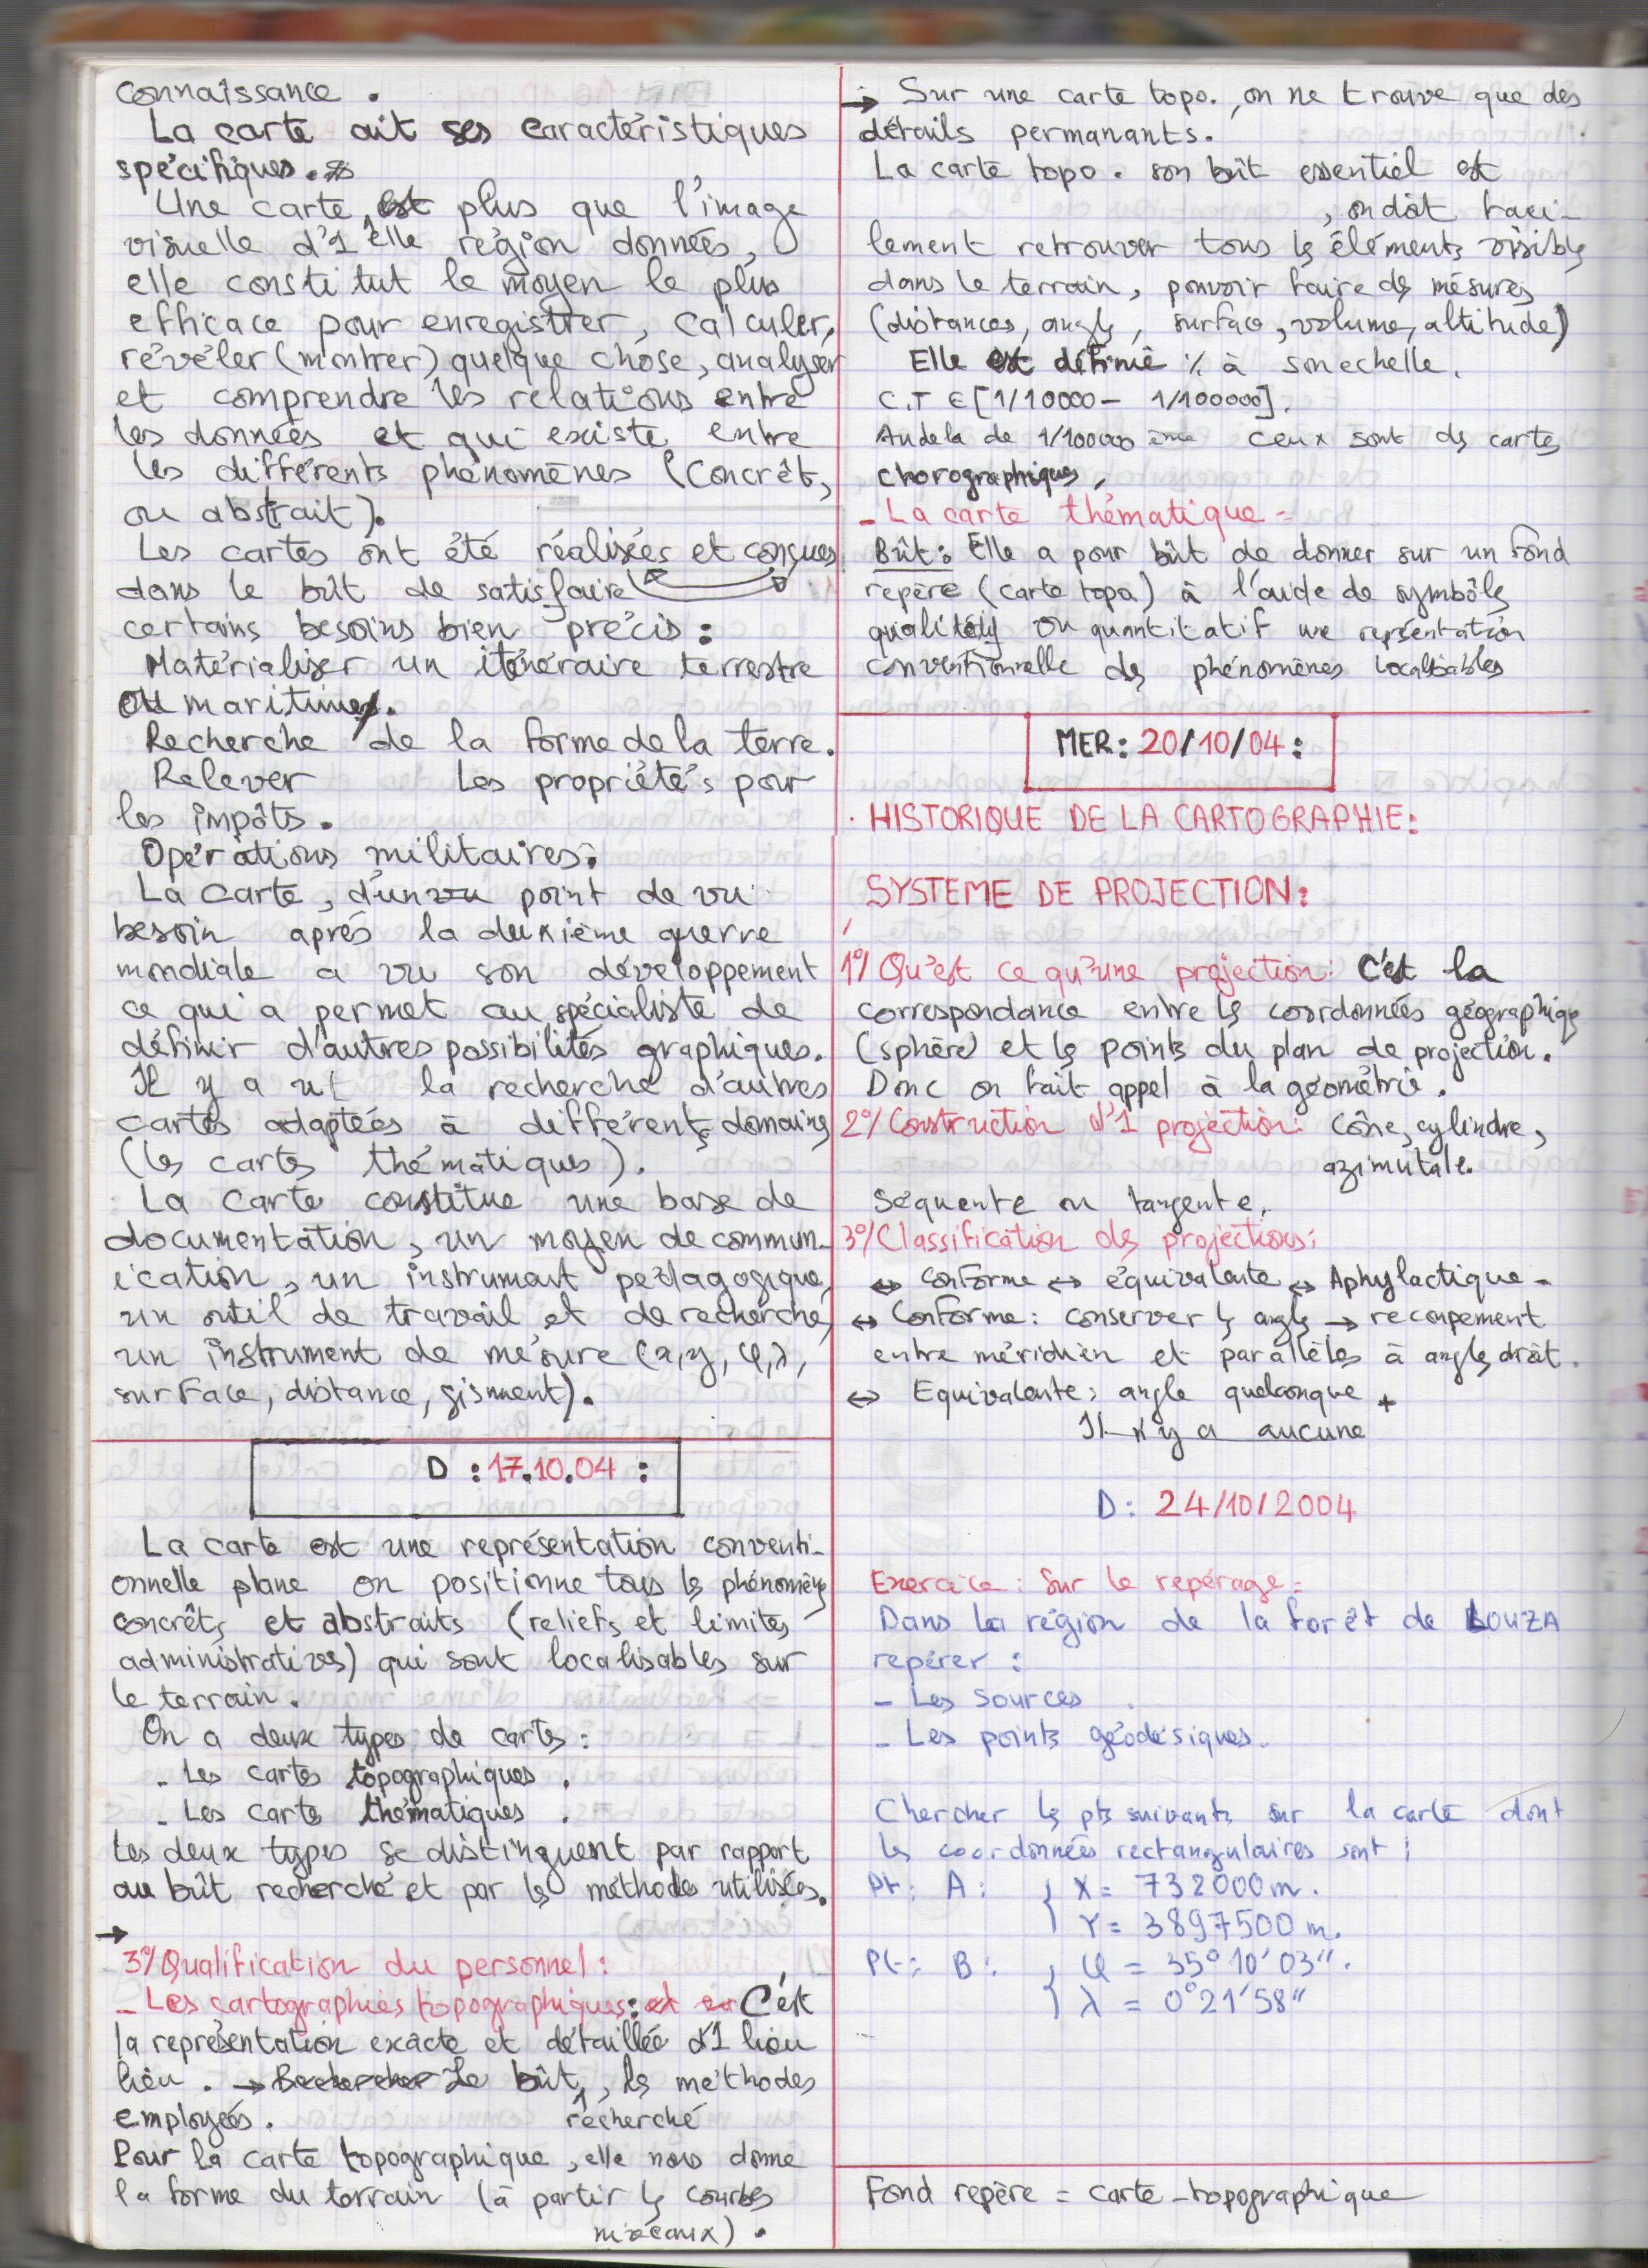 connaissance.
La carte ait ses caractéristiques
spécifiques.
Une carte, est plus que l'image
visuelle d'1 elle région données,
elle constitut le moyen le plus
efficace pour enregistrer, calculer,
révéler (montrer) quelque chose, analyser
et comprendre les relations entre
les données et qui existe entre
les différents phénomènes (Concrêt,
ou abstrait).
Les cartes ont été réalisées et conçues
dans le bût de satisfaire
certains besoins bien précis :
Matérialiser un itinéraire terrestre
ou maritimes.
Recherche de la forme de la terre.
Relever les propriété's pour
les impôts.
Opérations militaires.
La carte, d'un vu point de vu
besoin aprés la deuxième guerre
mondiale a vu son développement
ce qui a permet au spécialiste de
définir d'autres possibilités graphiques.
Il y a ut la recherche d'autres
cartes adaptées à différents domaines
(les cartes thématiques).
La carte constitue une base de
documentation, un moyen de commun-
ication, un instrument pédagogique,
un outil de travail et de recherche,
un instrument de mésure (x,y, φ,λ,
surface, distance, gisment).
D : 17.10.04 :
La carte est une représentation conventi-
onnelle plane on positionne tous les phénomènes
concrêts et abstraits (reliefs et limites
administratives) qui sont localisables sur
le terrain.
On a deux types de cartes :
- Les cartes topographiques.
- Les cartes thématiques.
Les deux types se distinguent par rapport
au bût recherché et par les méthodes utilisées.
→
3°/ Qualification du personnel :
- Les cartographies topographiques : C'est
la représentation exacte et détaillée d'1 lieu
lieu. → Rechercher Le bût, les méthodes
employées. recherché
Pour la carte topographique, elle nous donne
la forme du terrain (à partir les courbes
niveaux).
→ Sur une carte topo., on ne trouve que des
détails permanants.
La carte topo. son bût essentiel est
, on doit faci-
lement retrouver tous les éléments visibles
dans le terrain, pouvoir faire des mésures
(distances, angles, surface, volume, altitude)
Elle est définie % à son echelle.
C.T ∈ [1/10000 - 1/100000].
Audela de 1/100000 ème ceux sont des cartes
chorographiques.
- La carte thématique =
Bût : Elle a pour bût de donner sur un fond
repère (carte topo) à l'aide de symbôles
qualitatif ou quantitatif une représentation
conventionnelle des phénomènes localisables
MER : 20/10/04 :
HISTORIQUE DE LA CARTOGRAPHIE :
SYSTEME DE PROJECTION :
1°/ Qu'est ce qu'une projection : C'est la
correspondance entre les coordonnées géographiques
(sphère) et les points du plan de projection.
Donc on fait appel à la géométrie.
2°/ Construction d'1 projection : Cône, cylindre,
azimutale.
Séquente ou tangente.
3°/ Classification des projections :
↔ Conforme ↔ équivalente ↔ Aphylactique -
↔ Conforme : conserver les angles → recoupement
entre méridien et parallèles à angles droit.
↔ Equivalente : angle quelconque +
Il n'y a aucune
D : 24/10/2004
Exercice : Sur le repérage =
Dans la région de la forêt de LOUZA
repérer :
- Les sources
- Les points géodésiques.
Chercher les pts suivants sur la carte dont
les coordonnées rectangulaires sont :
Pt : A : { X = 732000 m.
Y = 3897500 m.
Pt : B : { φ = 35° 10' 03".
λ = 0° 21' 58"
Fond repère = carte topographique